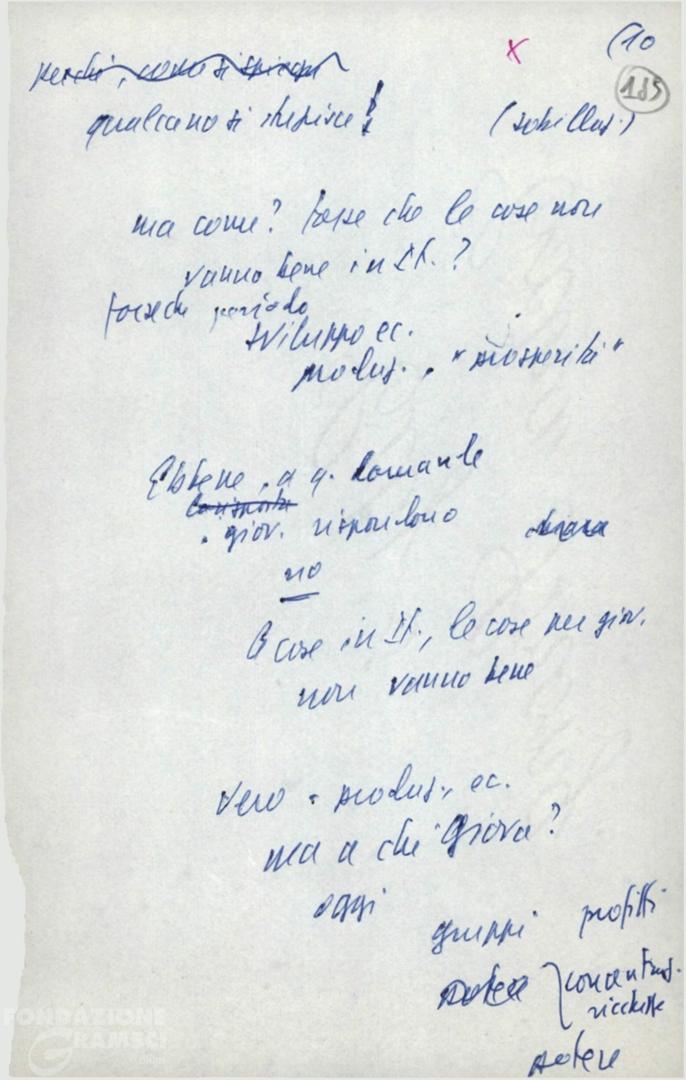 (10
185
perché, come si spiega
qualcuno si stupisce!
(sobillaz.)
ma come? forse che le cose non
vanno bene in It.?
forse che periodo
sviluppo ec.
produz., "prosperità"
Ebbene, a q. domande
i giov. rispondono
no
le cose in It., le cose per giov.
non vanno bene
vero • produz., ec.
ma a chi giova?
oggi
gruppi profitti
potere
concentraz.
ricchezze
potere
FONDAZIONE
GRAMSCI